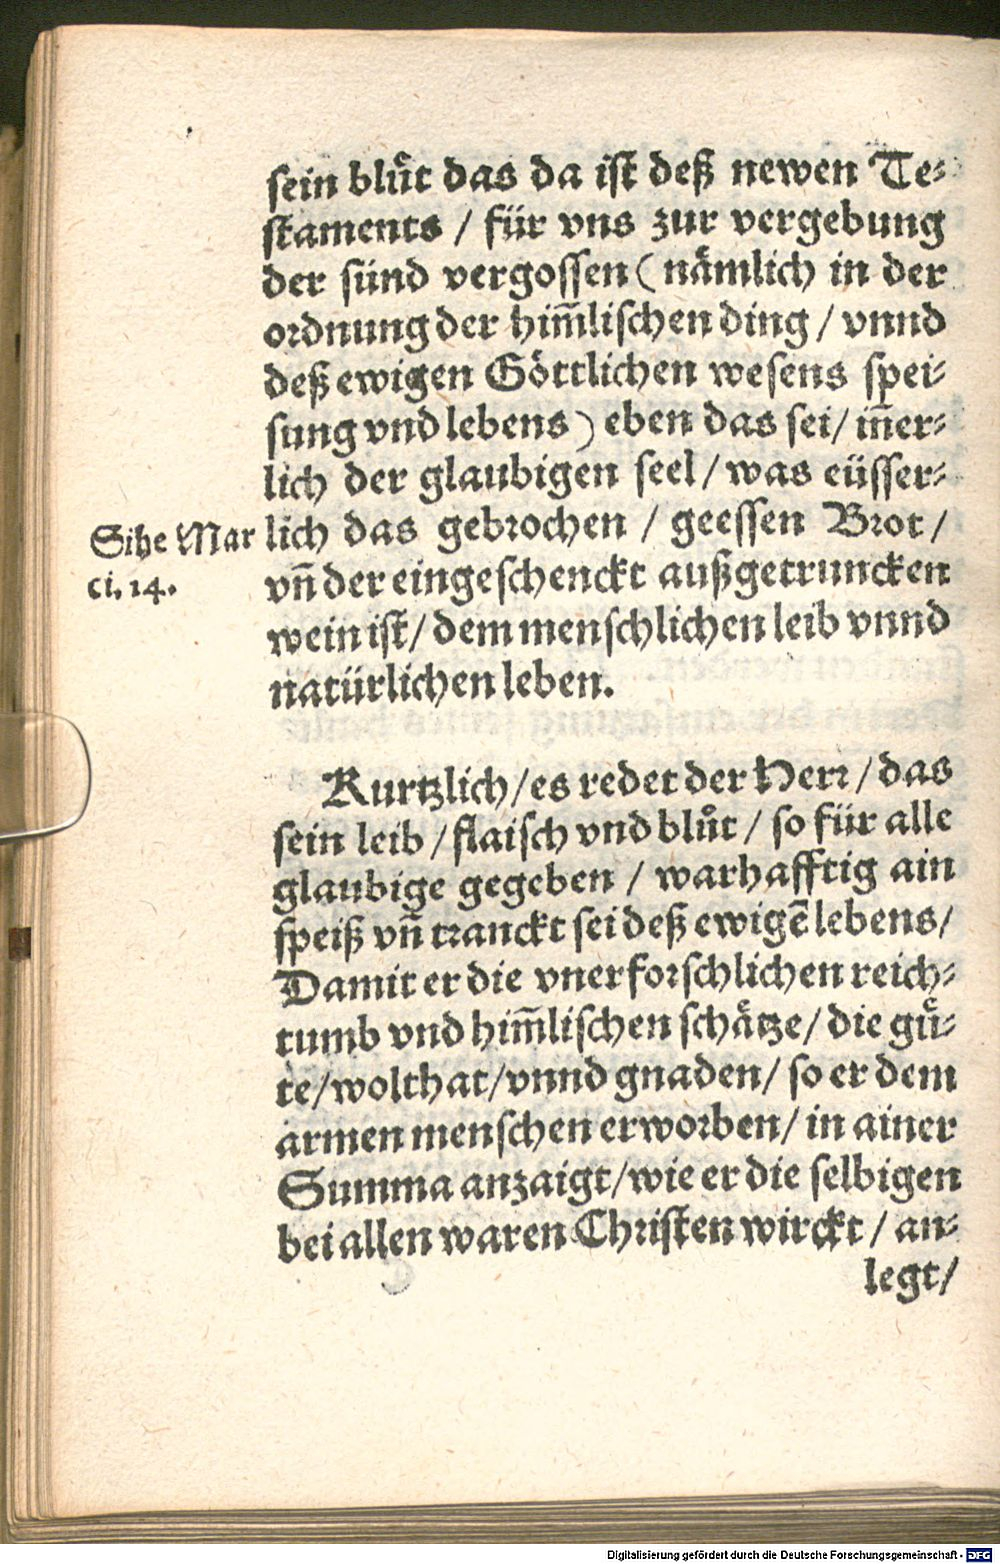 sein bluͦt das da ist deß newen Te-
staments / für vns zur vergebung
der sünd vergossen ( nämlich in der
ordnung der him̄lischen ding / vnnd
deß ewigen Göttlichen wesens spei-
sung vnd lebens ) eben das sei / in̄er-
lich der glaubigen seel / was eüsser-
Sihe Mar
ci. 14.
lich das gebrochen / geessen Brot /
vn̄ der eingeschenckt außgetruncken
wein ist / dem menschlichen leib vnnd
natürlichen leben.
Kurtzlich / es redet der Herr / das
sein leib / flaisch vnd bluͦt / so für alle
glaubige gegeben / warhafftig ain
speiß vn̄ tranckt sei deß ewigē lebens /
Damit er die vnerforschlichen reich-
tumb vnd him̄lischen schätze / die guͤ-
te / wolthat / vnnd gnaden / so er dem
armen menschen erworben / in ainer
Summa anzaigt / wie er die selbigen
bei allen waren Christen wirckt / an-
legt /
Digitalisierung gefördert durch die Deutsche Forschungsgemeinschaft - DFG